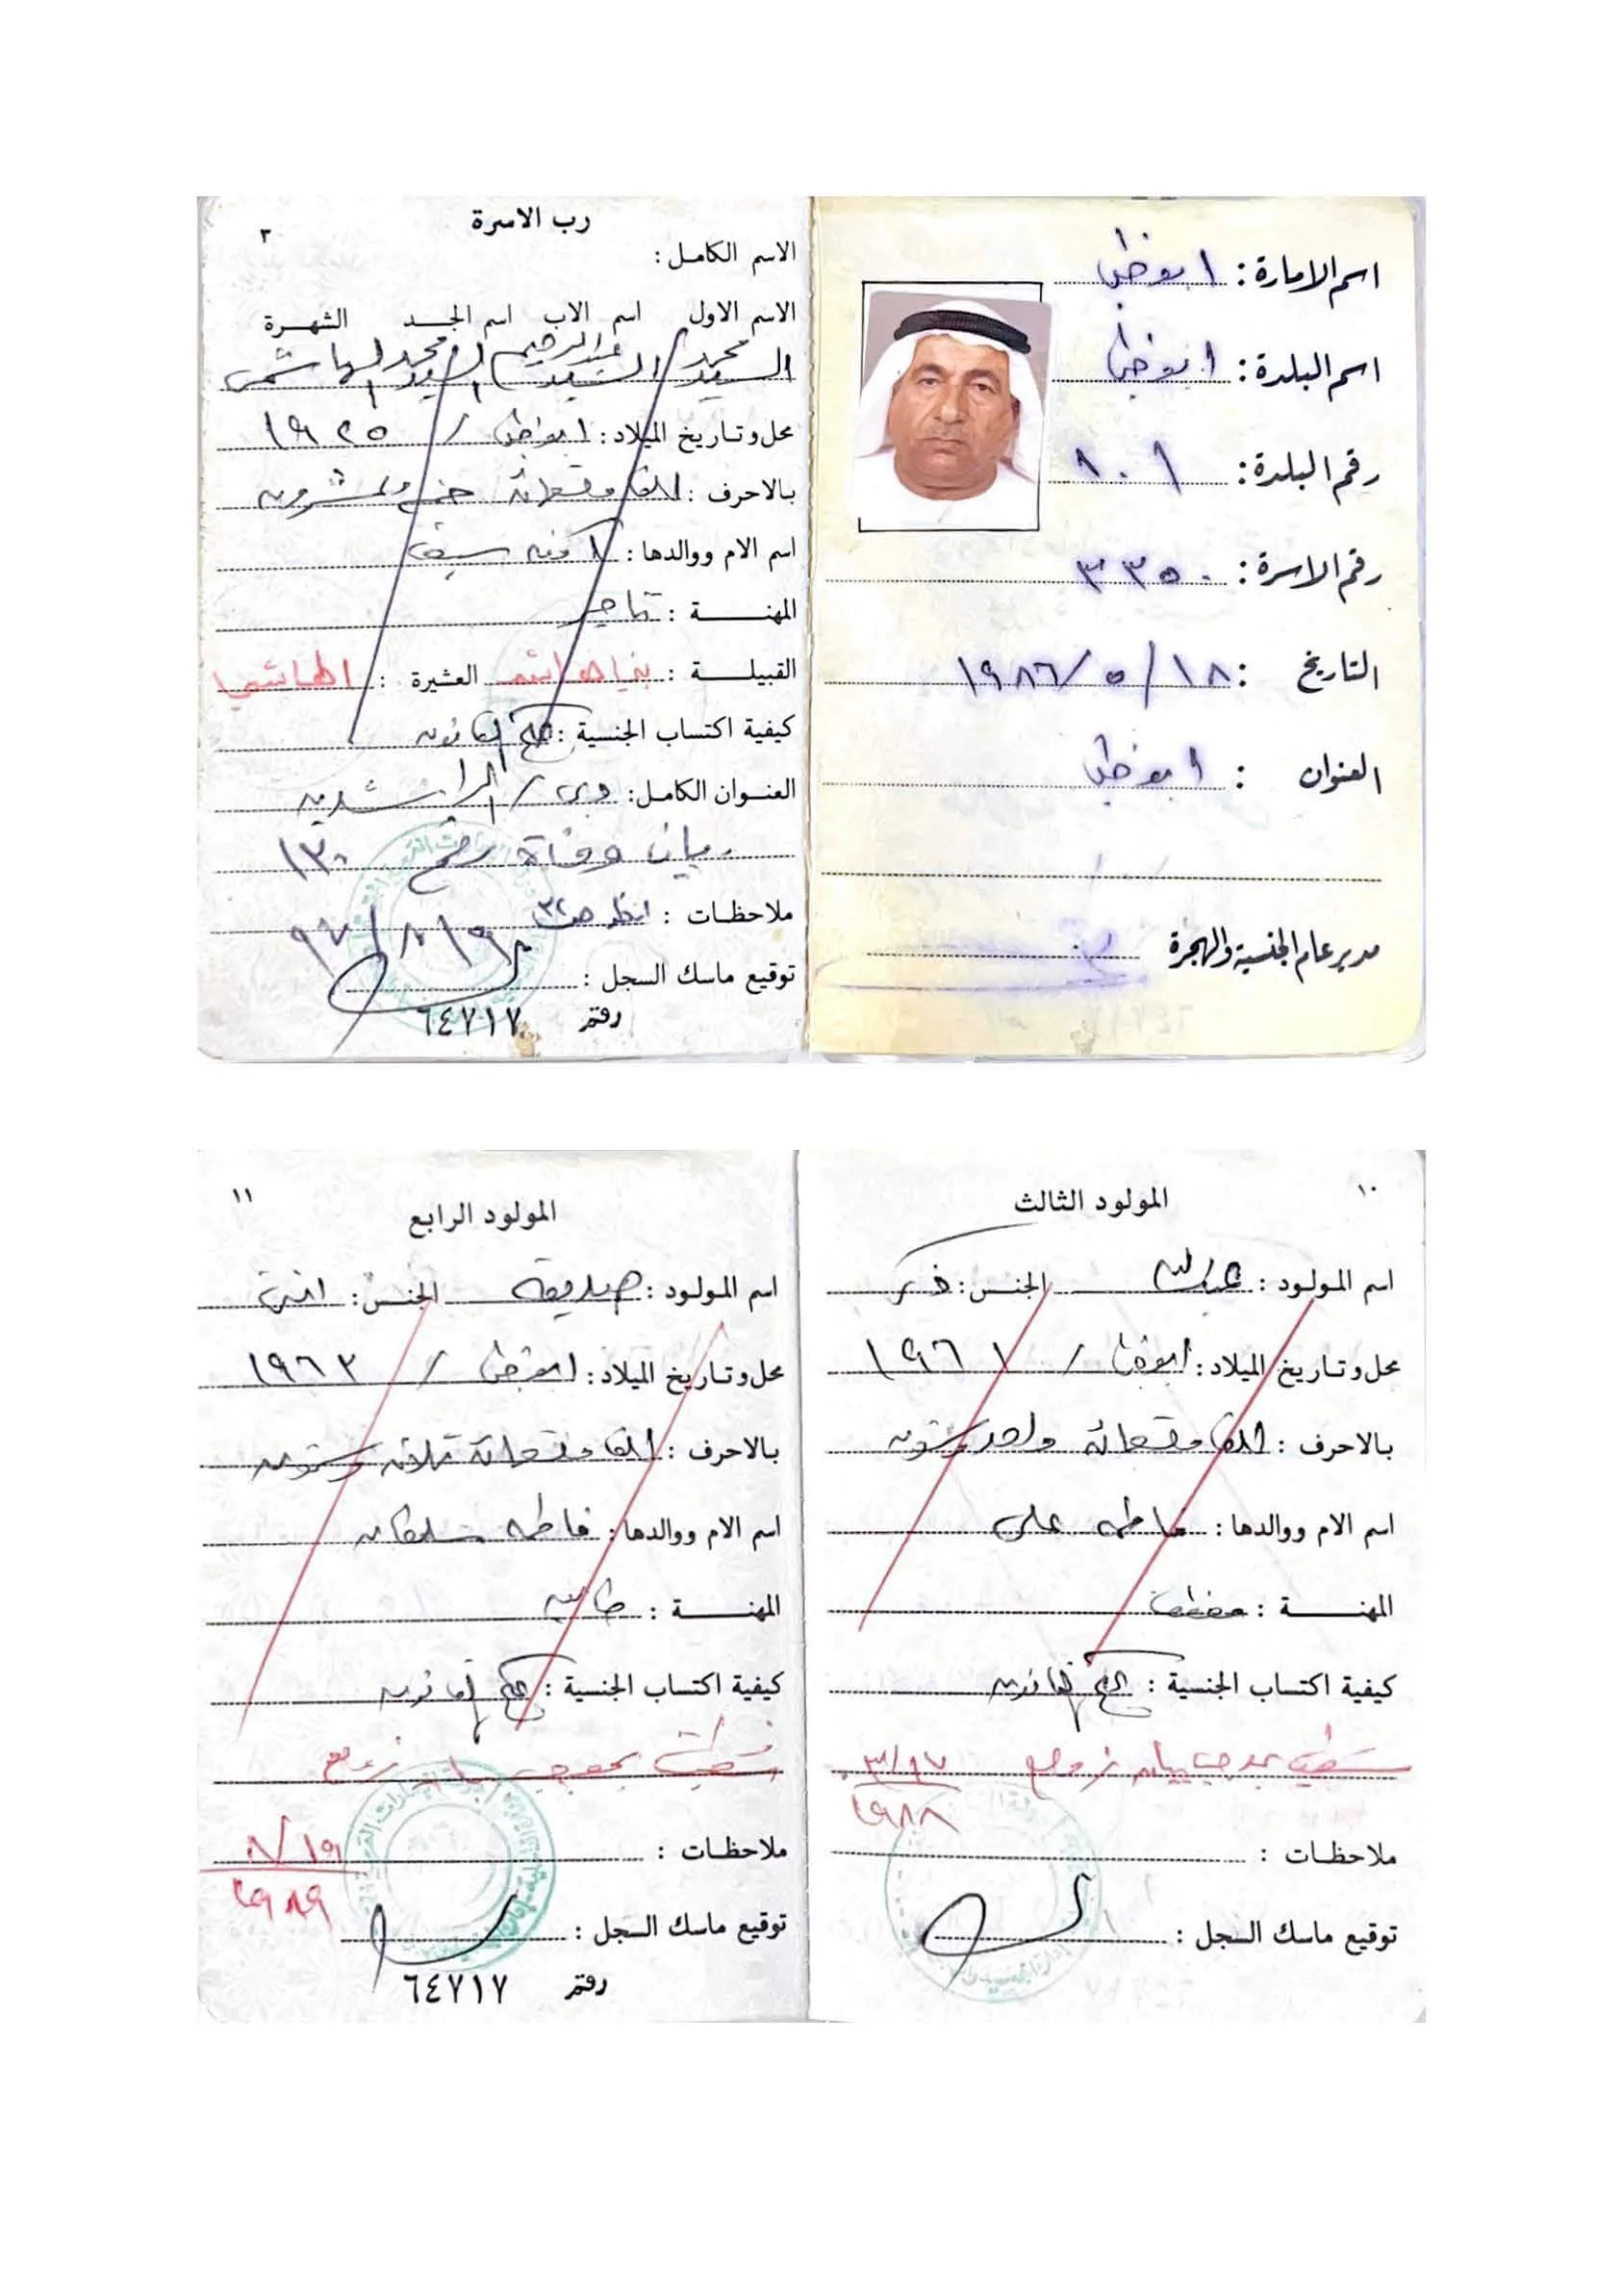 اسم الامارة : ابوظبي
اسم البلدة : ابوظبي
رقم البلدة : ١٠٨
رقم الاسرة : ٣٣٥٠
التاريخ : ١٩٨٦/٥/١٨
العنوان : ابوظبي
مدير عام الجنسية والهجرة
٣
رب الاسرة
الاسم الكامل :
الاسم الاول اسم الاب اسم الجد الشهرة
السيد محمد السيد عبدالرحيم السيد محمد الهاشمي
محل وتاريخ الميلاد : ابوظبي / ١٩٢٥
بالاحرف : الف وتسعمائة خمس وعشرون
اسم الام ووالدها : آمنه سيف
المهنة : تاجر
القبيلة : بني هاشم العشيرة : الهاشمي
كيفية اكتساب الجنسية : بحكم القانون
العنوان الكامل : دبي / الراشدية
بيان وفاة رقم ١٣٠
ملاحظات : انظر ص ٣٢
٩٧/٨/١٩
توقيع ماسك السجل :
رقم ٦٤٧١٧
١٠
المولود الثالث
اسم المولود : عبدالله الجنس : ذكر
محل وتاريخ الميلاد : ابوظبي / ١٩٦١
بالاحرف : الف وتسعمائة واحد وستون
اسم الام ووالدها : فاطمه علي
المهنة : موظف
كيفية اكتساب الجنسية : بحكم القانون
شطب بموجب بيان زواج
١٩٨٨
ملاحظات :
توقيع ماسك السجل :
١١
المولود الرابع
اسم المولود : صديقه الجنس : انثى
محل وتاريخ الميلاد : ابوظبي / ١٩٦٣
بالاحرف : الف وتسعمائة ثلاثة وستون
اسم الام ووالدها : فاطمه سلطان
المهنة : طالبه
كيفية اكتساب الجنسية : بحكم القانون
شطبت بموجب بيان زواج
ملاحظات : ٨/١٩
١٩٨٩
توقيع ماسك السجل :
رقم ٦٤٧١٧